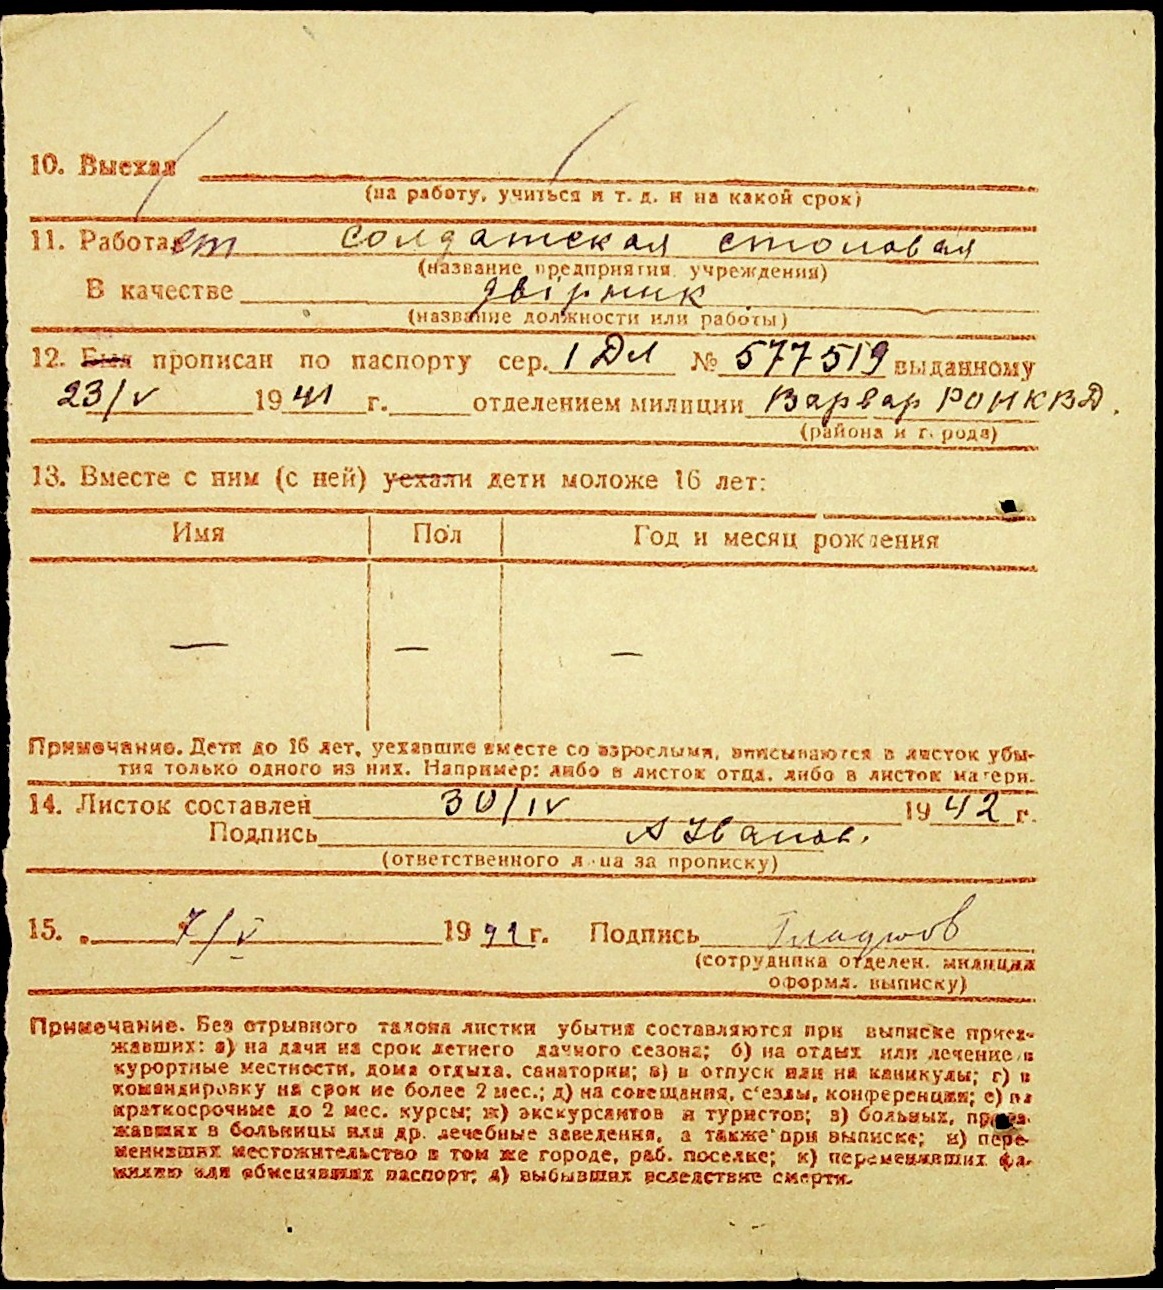 10. Выехал
(на работу, учиться и т. д. и на какой срок)
11. Работает солдатская столовая
(название предприятия учреждения)
В качестве двірник
(название должности или работы)
12. Был прописан по паспорту сер. 1 Дл № 577519 выданному
23/V 1941 г. отделением милиции Варвар РОНКВД.
(района и города)
13. Вместе с ним (с ней) уехали дети моложе 16 лет:
Имя Пол Год и месяц рождения
— — —
Примечание. Дети до 16 лет, уехавшие вместе со взрослыми, вписываются в листок убы-
тия только одного из них. Например: либо в листок отца, либо в листок матери.
14. Листок составлен 30/IV 1942 г.
Подпись А Иванов.
(ответственного лица за прописку)
15. 7/V 1942 г. Подпись
(сотрудника отделен. милиции
оформл. выписку)
Примечание. Без отрывного талона листки убытия составляются при выписке приез-
жавших: а) на дачи на срок летнего дачного сезона; б) на отдых или лечение в
курортные местности, дома отдыха, санатории; в) в отпуск или на каникулы; г) в
командировку на срок не более 2 мес.; д) на совещания, с'езды, конференции; е) на
краткосрочные до 2 мес. курсы; ж) экскурсантов и туристов; з) больных, приез-
жавших в больницы или др. лечебные заведения, а также при выписке; и) пере-
менивших местожительство в том же городе, раб. поселке; к) переменивших фа-
милию или обменявших паспорт; л) выбывших вследствие смерти.